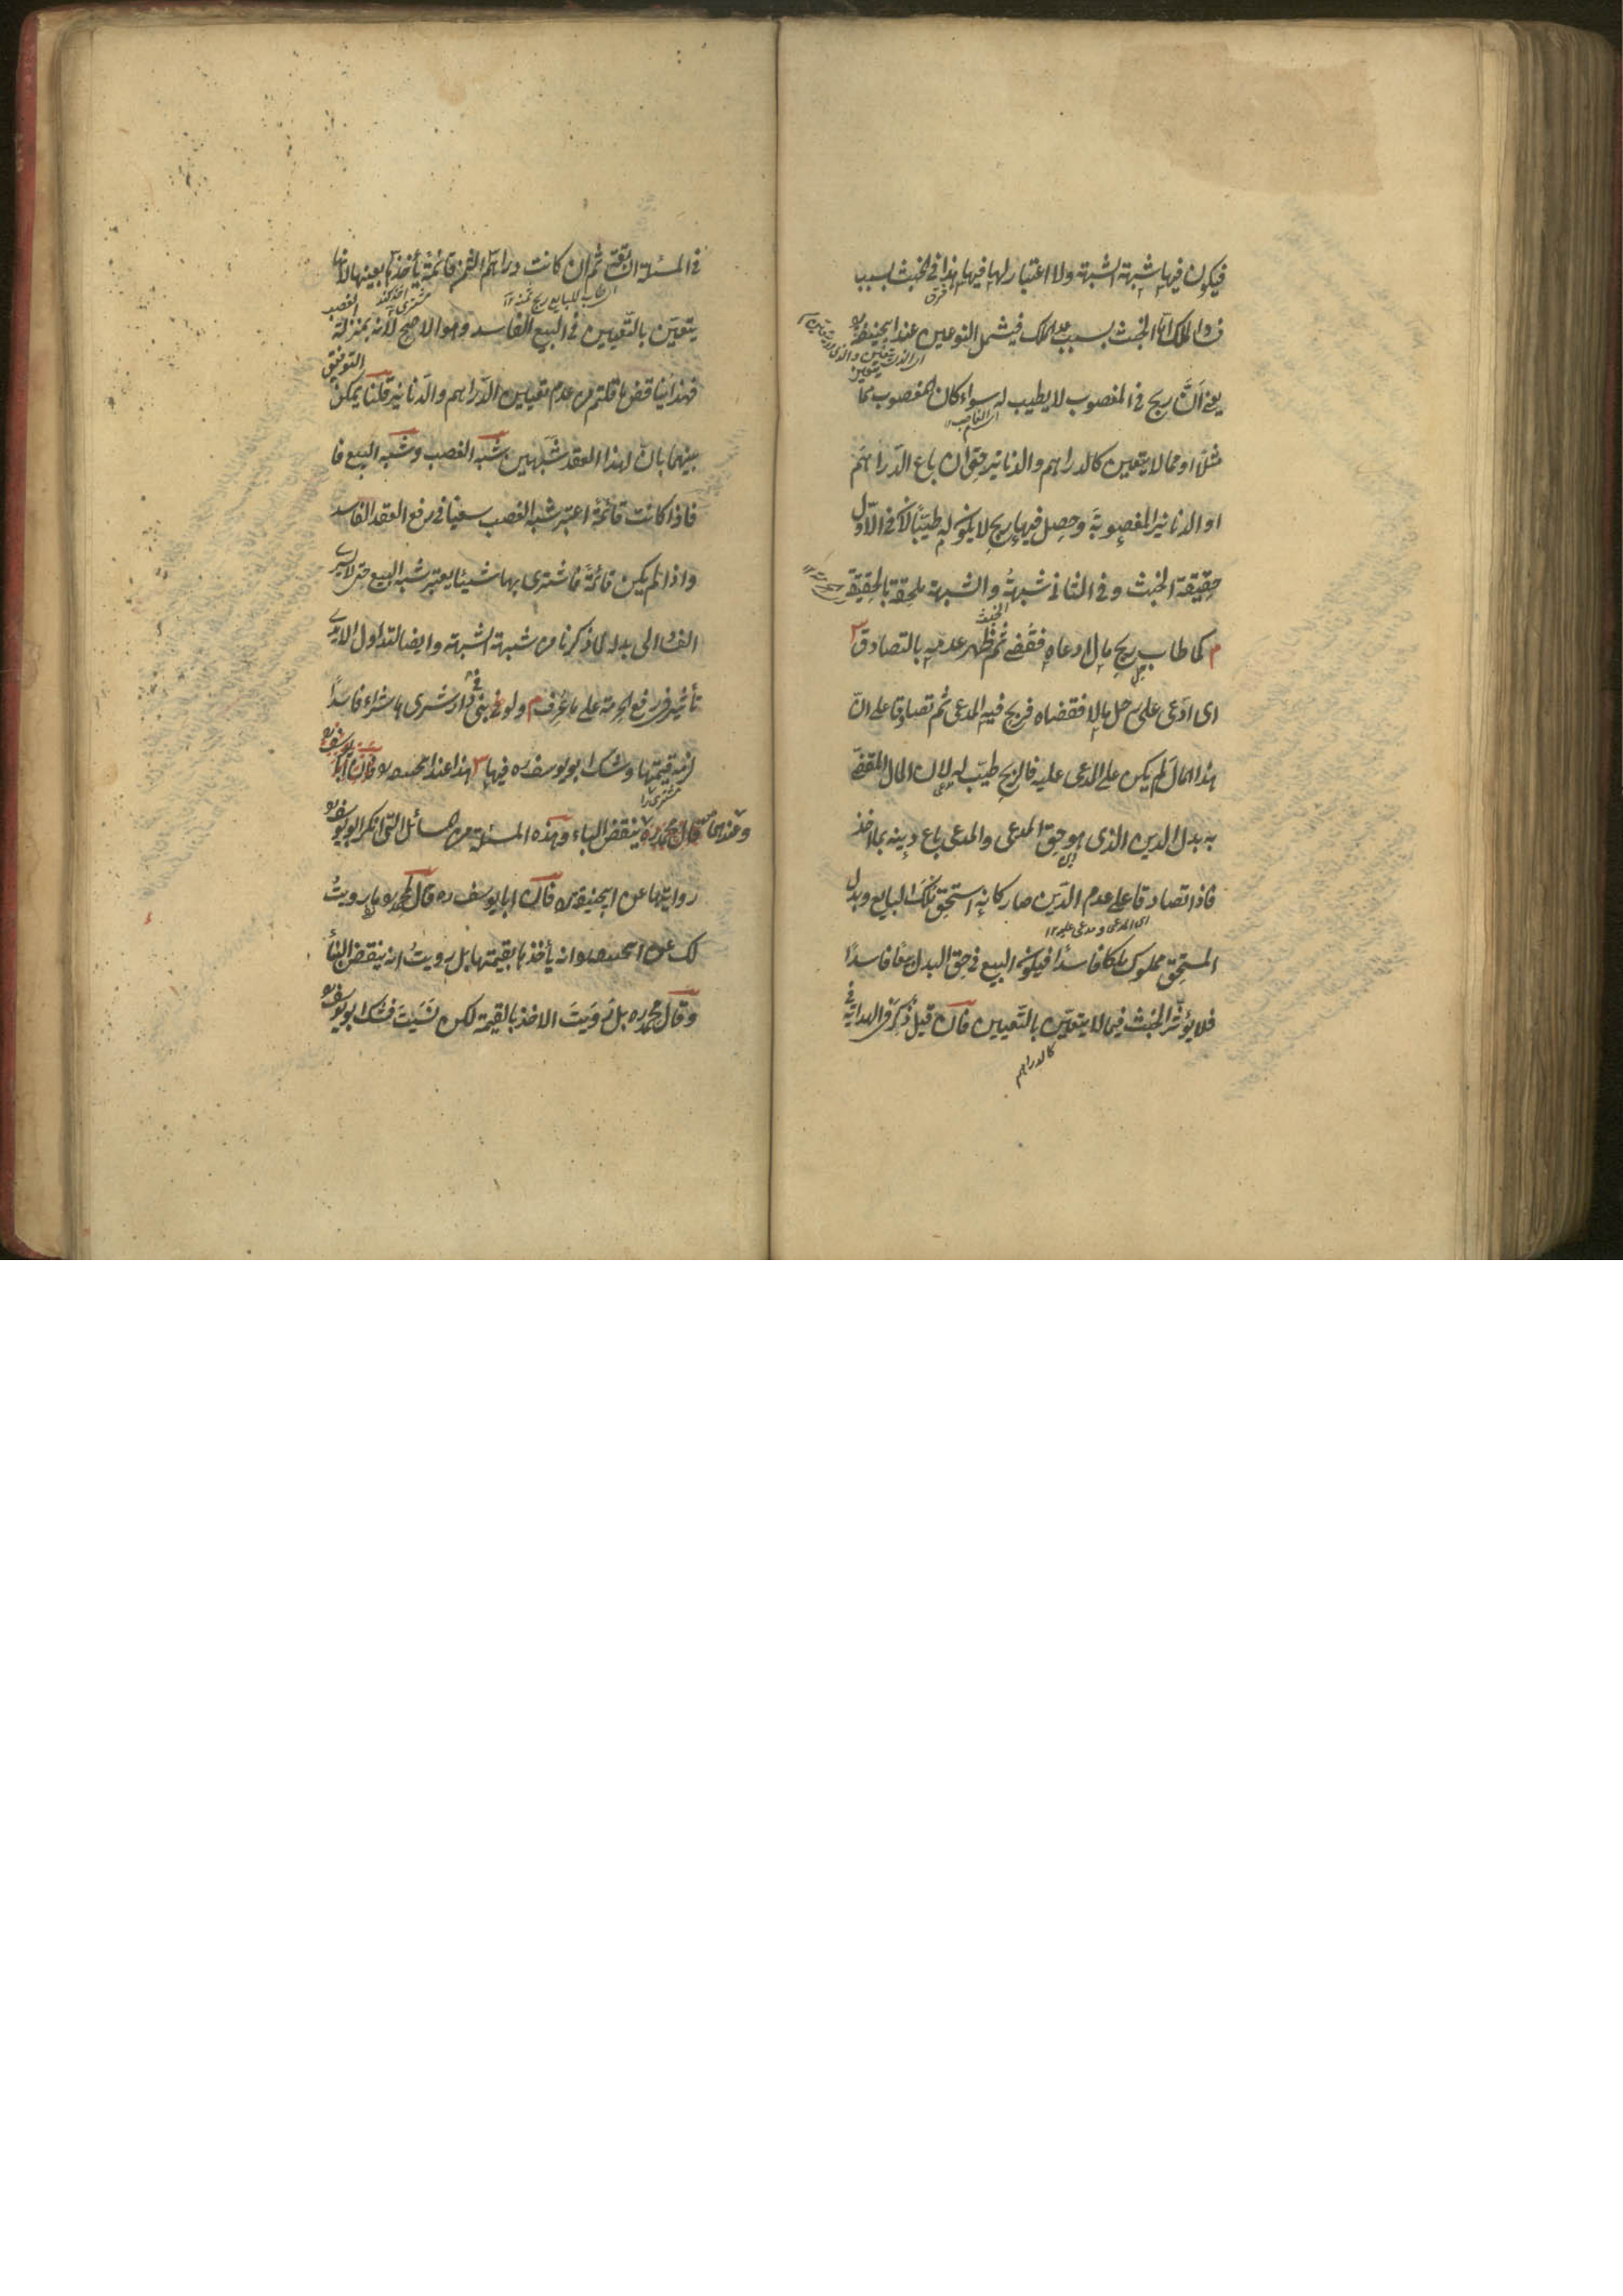 فيكون فيها شبهة الشبهة ولا اعتبار لها فيها هذا في الخبث بسبب
فرق
فساد الملك اما الخبث بسبب عدم الملك فيشمل النوعين عند ابيحنيفة ره
يعني ان ربح في المغصوب لا يطيب له سواء كان المغصوب مما
اى الغاصب
مثلا او مما لا يتعين كالدراهم والدنانير حتى ان باع الدراهم
او الدنانير المغصوبة وحصل فيها ربح لا يكون له طيبا لان في الاول
حقيقة الخبث وفي الثاني شبهة والشبهة ملحقة بالحقيقة
الخبث
م كما طاب ربح مال ادعاه فقضى ثم ظهر عدمه بالتصادق
اى ادعى على رجل مالا فقضاه فربح فيه المدعى ثم تصادقا على ان
هذا المال لم يكن على المدعى عليه فالربح طيب له لان المال المقضى
به بدل الدين الذى هو حق المدعى والمدعى باع دينه بما اخذ
فاذا تصادقا على عدم الدين صار كانه استحق ملك البايع وبدل
اى المدعى ومدعى عليه ١٢
المستحق مملوك ملكا فاسدا فيكون البيع في حق البدل بيعا فاسدا
فلا يؤثر الخبث فيما لا يتعين بالتعيين فان قيل ذكر في الهداية
كالدراهم
في المسئلة السابقة ثم ان كانت دراهم الثمن قائمة يأخذها بعينها لانها
يتعين بالتعيين في البيع الفاسد وهو الاصح لانه بمنزلة
الغصب
فهذا يناقض ما قلتم من عدم تعيين الدراهم والدنانير قلنا يمكن
التوفيق
بينهما بان لهذا العقد شبهين شبه الغصب وشبه البيع فا
فاذا كانت قائمة اعتبر شبه الغصب سعيا في رفع العقد الفاسد
واذا لم يكن قائمة فاشترى بها شيئا يعتبر شبه البيع حتى لا يسرى
الفساد الى بدله لما ذكرنا من شبهة الشبهة وايضا لتداول الايدى
تأثير في رفع الحرمة على ما عرف م ولو بنى في دار شرى ها شراء فاسدا
لزمه قيمتها وشك ابو يوسف ره فيها هذا عند ابيحنيفة ره فان ابا
يوسف ره
وعندهما قال محمد ره ينقض البناء وهذه المسئلة من المسائل التى انكر ابو يوسف ره
روايتها عن ابيحنيفة ره فان ابا يوسف ره قال لمحمد ره ما رويت
لك عن ابيحنيفة ره انه يأخذها بقيمتها بل رويت انه ينقض البناء
وقال محمد ره بل رويت الاخذ بالقيمة لكن نسيت فشك ابو يوسف ره